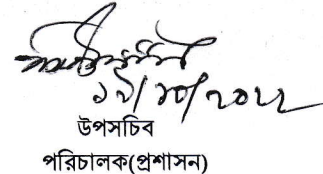 ১৯/১০/২০২২
উপসচিব
পরিচালক(প্রশাসন)